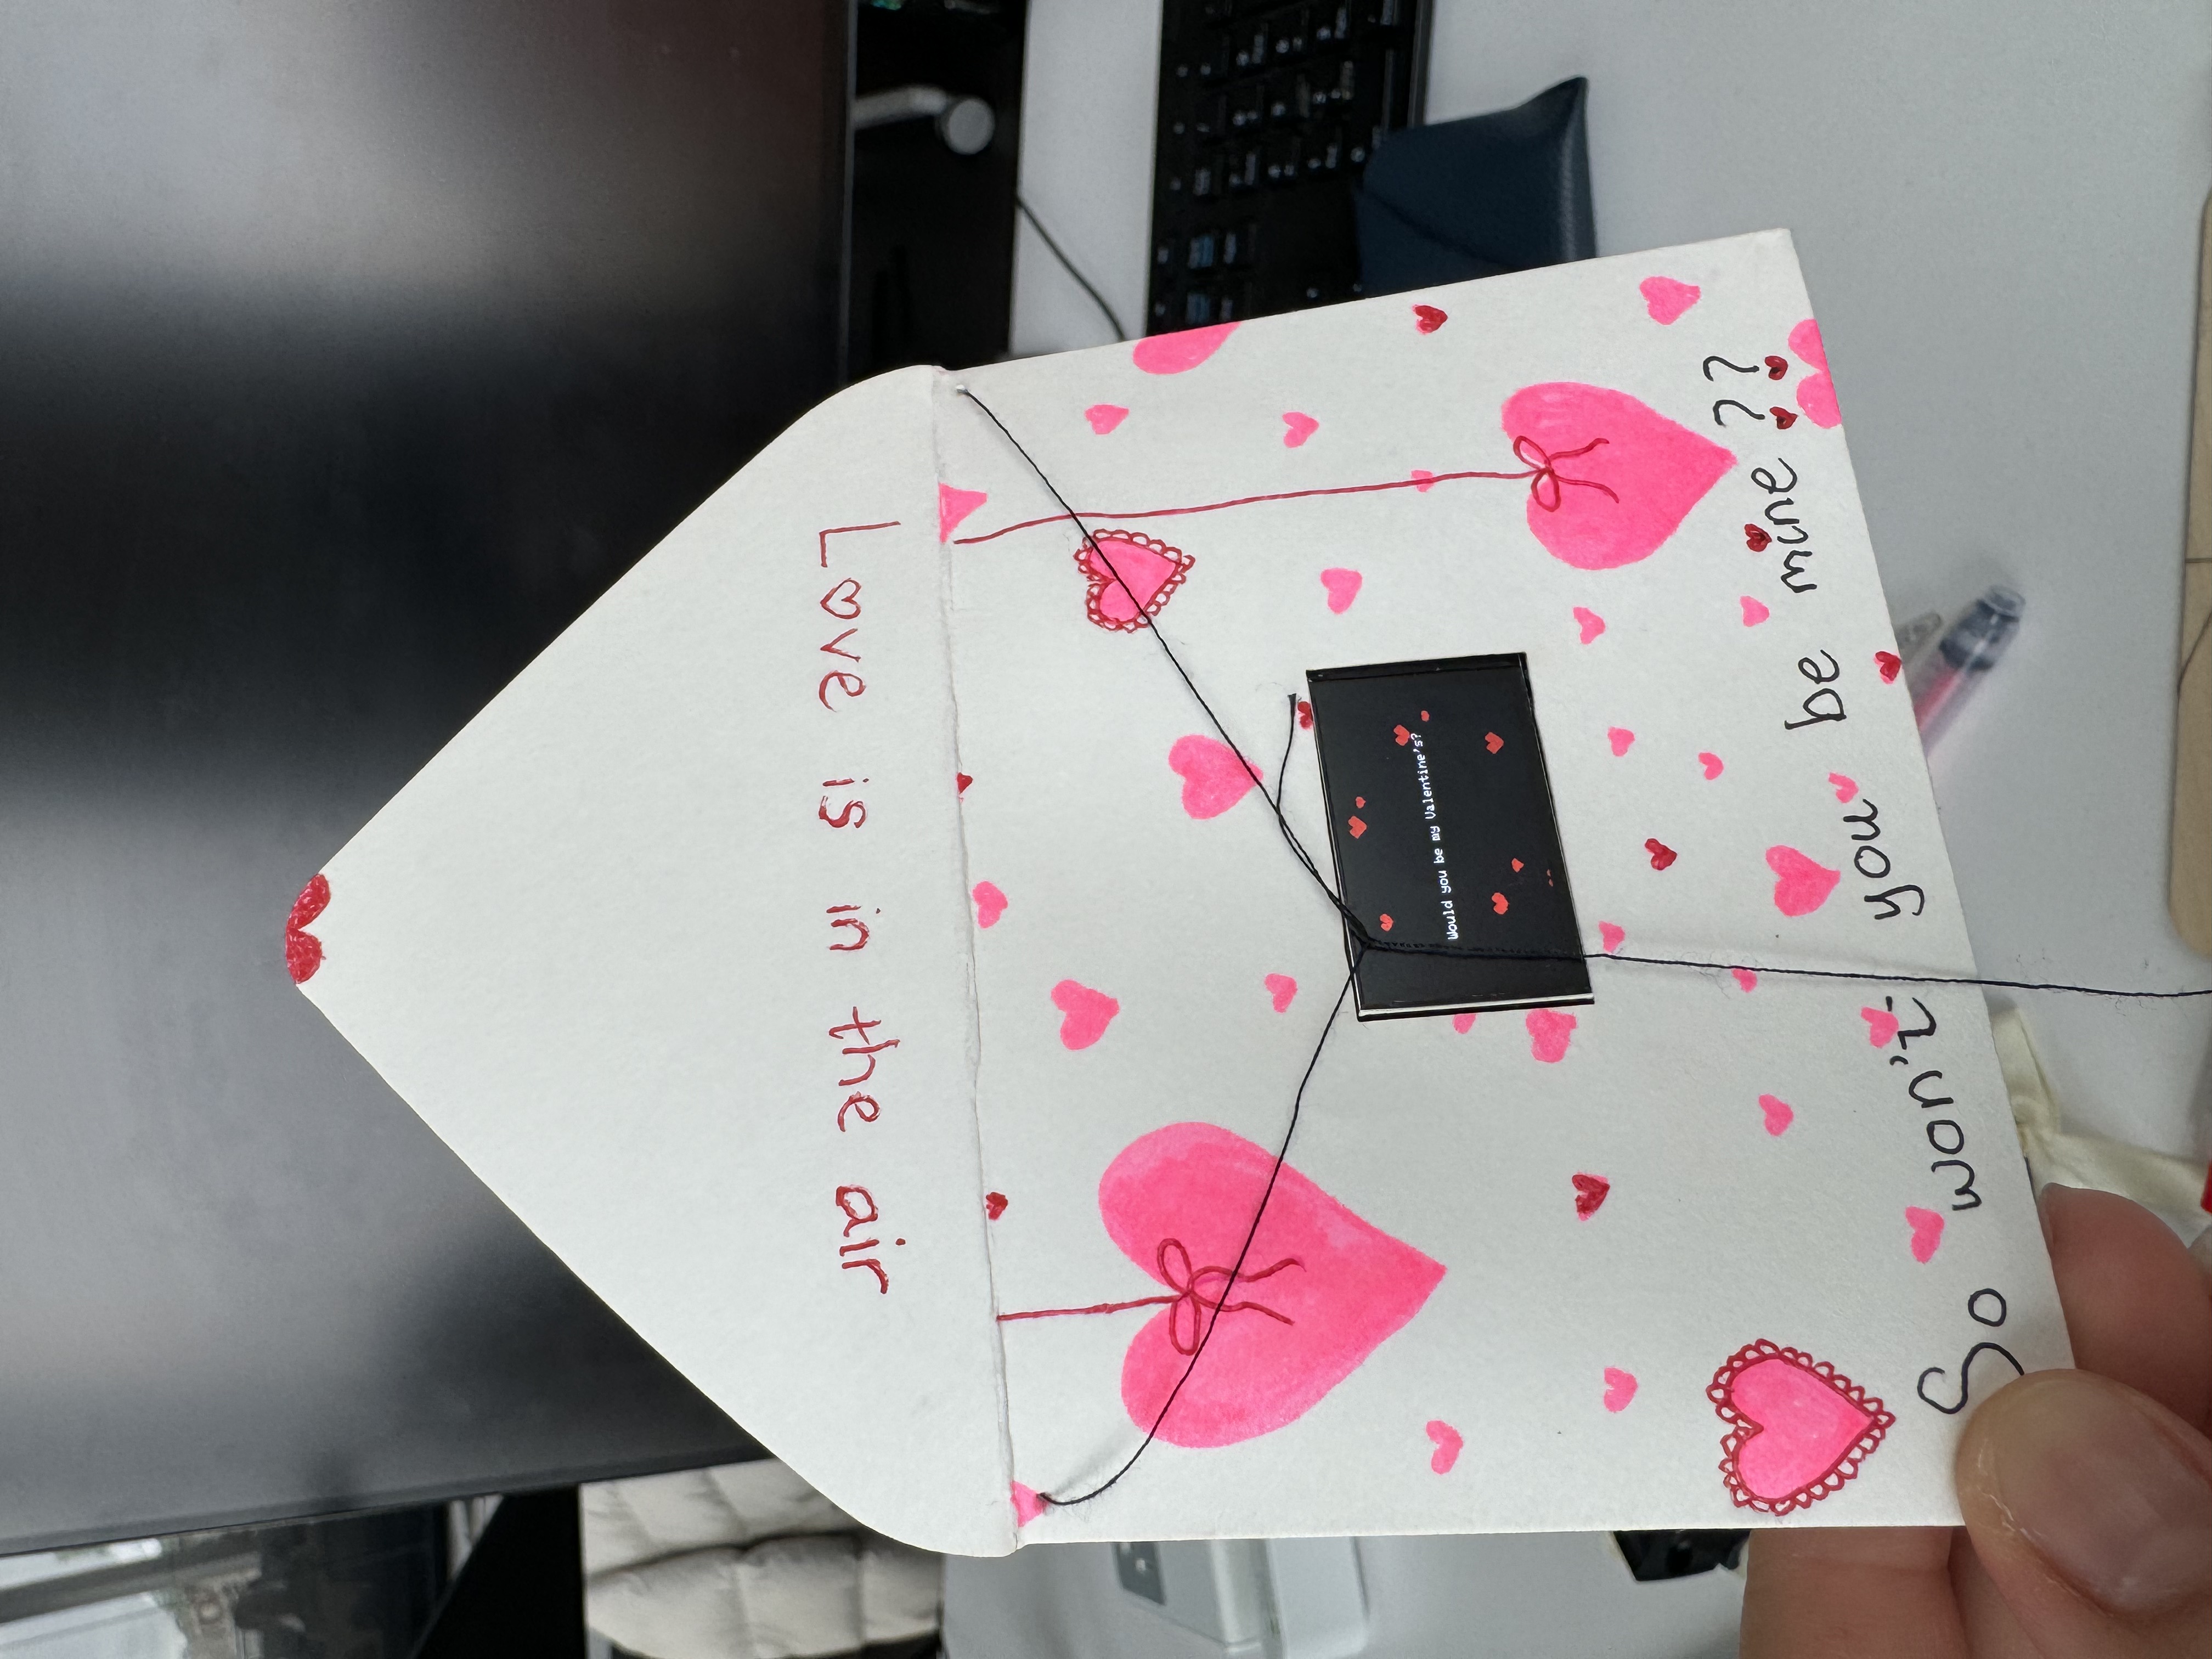 Love is in the air
Would you be my Valentine's?
So won't you be mine??